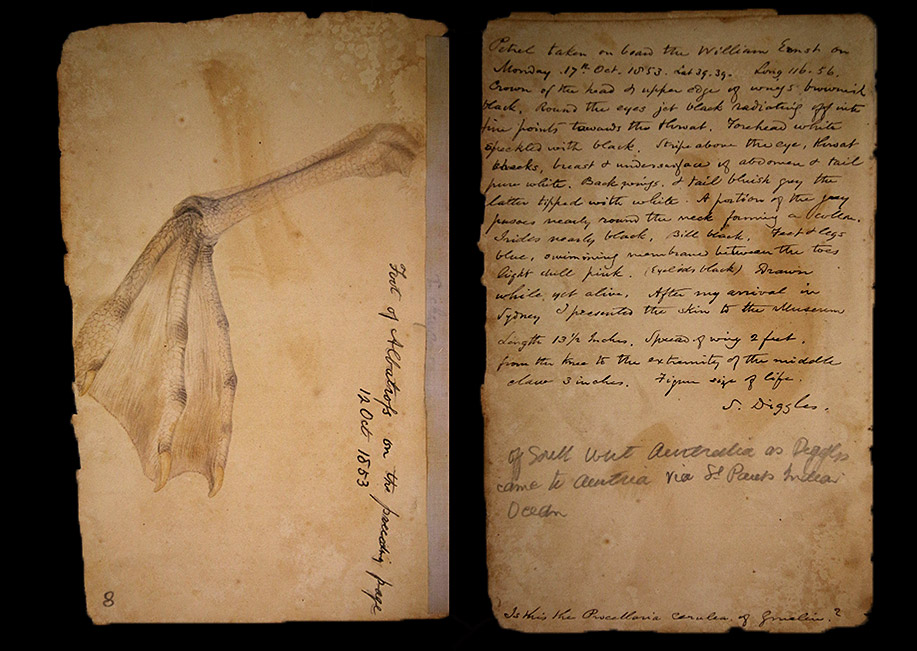 Foot of Albatross on the preceding page
12 Oct 1853
8
Petrel taken on board the William Ernst on
Monday 17th Oct. 1853. Lat 39.39. Long 116.56.
Crown of the head & upper edge of wings brownish
black. Round the eyes jet black radiating off into
fine points towards the throat. Forehead white
speckled with black. Stripe above the eye, throat
cheeks, breast & undersurface of abdomen & tail
pure white. Back wings, & tail bluish grey the
latter tipped with white. A portion of the grey
passes nearly round the neck forming a collar.
Irides nearly black. Bill black. Feet & legs
blue, swimming membrane between the toes
light dull pink. (Eyelids black) Drawn
while yet alive. After my arrival in
Sydney I presented the skin to the Museum
Length 13½ Inches. Spread of wing 2 feet.
from the knee to the extremity of the middle
claw 3 inches. Figure size of life.
S. Diggles.
of South West Australia as Diggles
came to via St Pauls Indian
Ocean
Is this the Procellaria cerulea of Gmelin?